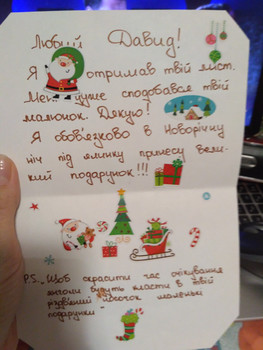 Любий Давид!
Я отримав твій лист.
Мені дуже сподобався твій
малюнок. Дякую!
Я обов'язково в Новорічну
ніч під ялинку принесу вели-
кий подарунок!!!
P.S. Щоб скрасити час очікування
янголи будуть класти в твій
різдвяний чобіток маленькі
подарунки